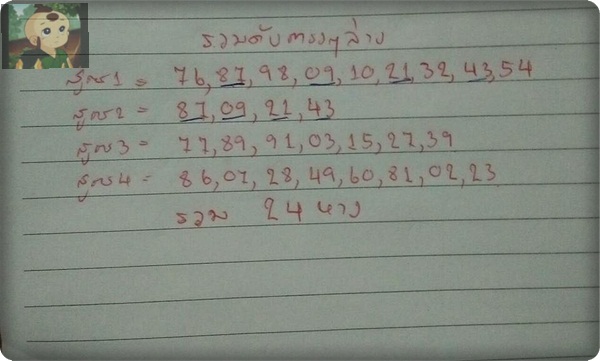 รวมดับตรงๆล่าง
สูตร1 = 76,87,98,09,10,21,32,43,54
สูตร2 = 87,09,21,43
สูตร3 = 77,89,91,03,15,27,39
สูตร4 = 86,07,28,49,60,81,02,23
รวม 24 หาง